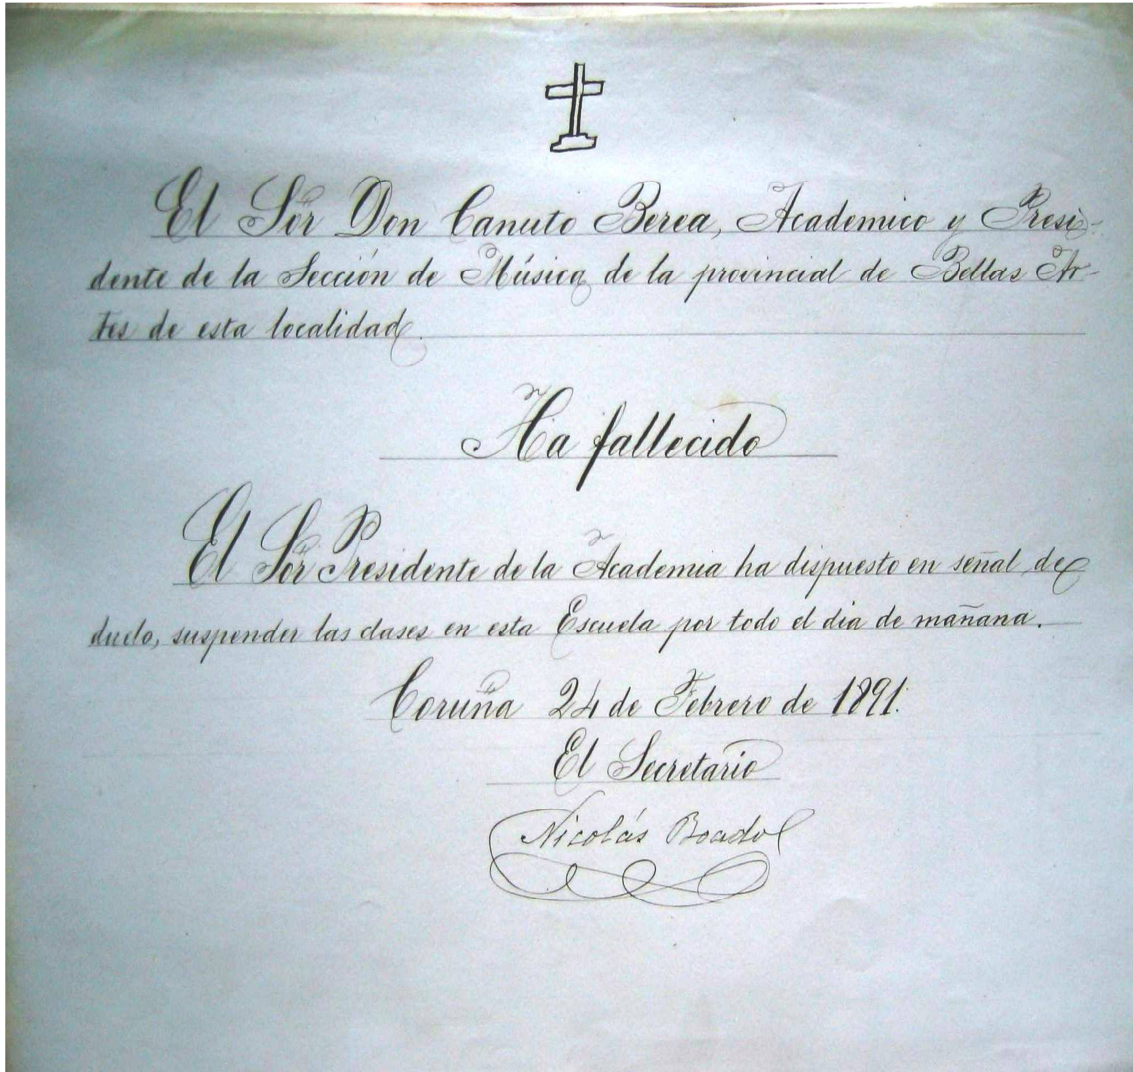 El Sör Don Canuto Berea, Academico y Presi-
dente de la Sección de Música de la provincial de Bellas Ar-
tes de esta localidad.
Ha fallecido
El Sör Presidente de la Academia ha dispuesto en señal de
duelo, suspender las clases en esta Escuela por todo el dia de mañana.
Coruña 24 de Febrero de 1891.
El Secretario
Nicolás Boado